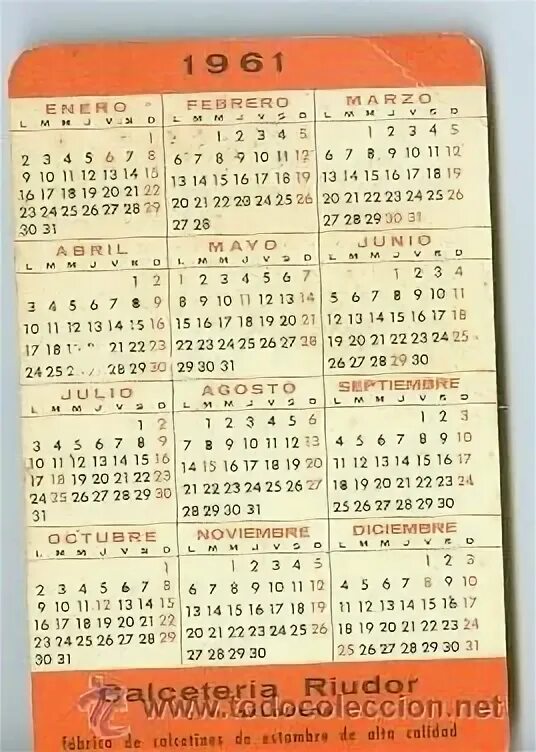 1961
ENERO FEBRERO MARZO
L M M J V S D L M M J V S D L M M J V S D
1 1 2 3 4 5 1 2 3 4 5
2 3 4 5 6 7 8 6 7 8 9 10 11 12 6 7 8 9 10 11 12
9 10 11 12 13 14 15 13 14 15 16 17 18 19 13 14 15 16 17 18 19
16 17 18 19 20 21 22 20 21 22 23 24 25 26 20 21 22 23 24 25 26
23 24 25 26 27 28 29 27 28 27 28 29 30 31
30 31
ABRIL MAYO JUNIO
L M M J V S D L M M J V S D L M M J V S D
1 2 1 2 3 4 5 6 7 1 2 3 4
3 4 5 6 7 8 9 8 9 10 11 12 13 14 5 6 7 8 9 10 11
10 11 12 13 14 15 16 15 16 17 18 19 20 21 12 13 14 15 16 17 18
17 18 21 22 23 22 23 24 25 26 27 28 19 20 21 22 23 24 25
24 25 28 29 30 29 30 31 26 27 28 29 30
JULIO AGOSTO SEPTIEMBRE
L M M J V S D L M M J V S D L M M J V S D
1 2 1 2 3 4 5 6 1 2 3
3 4 5 6 7 8 9 7 8 9 10 11 12 13 4 5 6 7 8 9 10
10 11 12 13 14 15 16 14 15 16 17 18 19 20 11 12 13 14 15 16 17
17 18 19 20 21 22 23 21 22 23 24 25 26 27 18 19 20 21 22 23 24
24 25 26 27 28 29 30 28 29 30 31 25 26 27 28 29 30
31
OCTUBRE NOVIEMBRE DICIEMBRE
L M M J V S D L M M J V S D L M M J V S D
1 1 2 3 4 5 1 2 3
2 3 4 5 6 7 8 6 7 8 9 10 11 12 4 5 6 7 8 9 10
9 10 11 12 13 14 15 13 14 15 16 17 18 19 11 12 13 14 15 16 17
16 17 18 19 20 21 22 20 21 22 23 24 25 26 18 19 20 21 22 23 24
23 24 25 26 27 28 29 27 28 29 30 25 26 27 28 29 30 31
30 31
Calceteria Riudor
www.todocoleccion.net
fábrica de calcetines de estambre de alta calidad